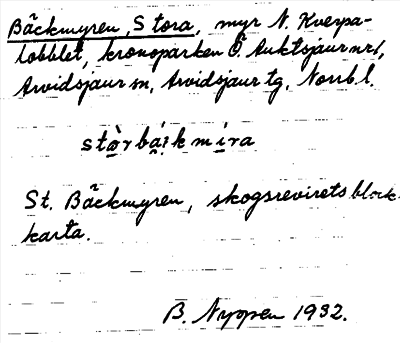 Bäckmyren, Stora, myr N. Kverpa-
lobblet, kronoparken Ö. Auktsjaur nr 1,
Arvidsjaur sn, Arvidsjaur tg, Norrb l.
St. Bäckmyren, skogsrevirets block-
karta.
B. Nyopen 1932.